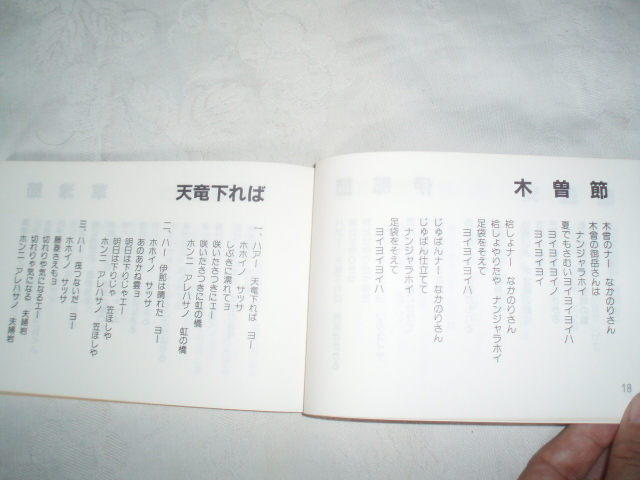 木曽節
木曽のナー　なかのりさん
木曽の御岳さんは
ナンジャラホイ
夏でもさむいヨイヨイヨイ
ヨイヨイヨイノ
ヨイヨイヨイ
袷しょナー　なかのりさん
袷しょやりたや　ナンジャラホイ
足袋をそえて
ヨイヨイヨイ
じゅばんナー　なかのりさん
じゅばん仕立てて
ナンジャラホイ
足袋をそえて
ヨイヨイヨイハ
18
天竜下れば
一、ハアー　天竜下れば　ヨー
ホホイノ　サッサ
しぶきに濡れてヨ
咲いたさつきにエー
咲いたさつきに虹の橋
ホンニ　アレハサノ　虹の橋
二、ハー　伊那は晴れた　ヨー
ホホイノ　サッサ
あのあかね雲ヨ
明日は下りじゃエー
明日は下りじゃ　笠ほしや
ホンニ　アレハサノ　笠ほしや
三、ハー　筏つないだ　ヨー
ホホイノ　サッサ
藤巻さえもヨ
切れりゃ気になるエー
切れりゃ気になる　夫婦岩
ホンニ　アレハサノ　夫婦岩